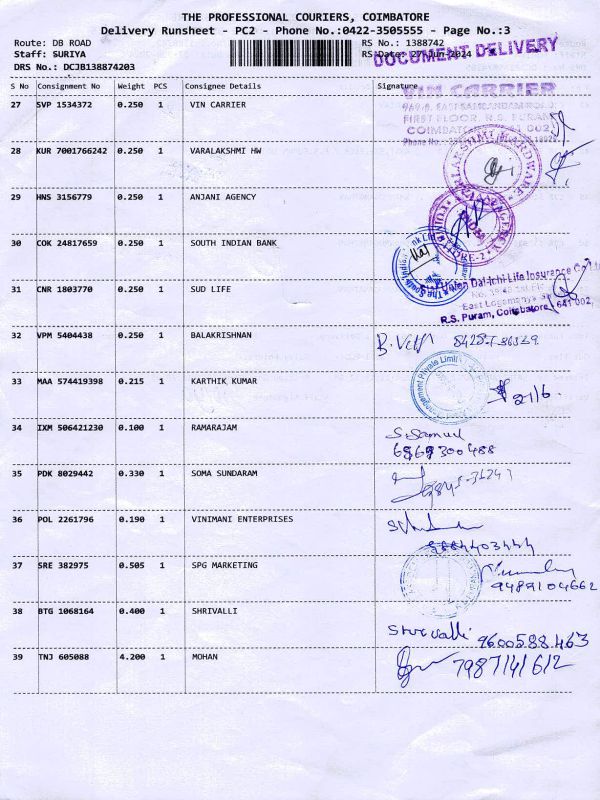 THE PROFESSIONAL COURIERS, COIMBATORE
Delivery Runsheet - PC2 - Phone No.:0422-3505555 - Page No.:3
Route: DB ROAD RS No.: 1388742
Staff: SURIYA RS Date: 27-Jun-2024
DOCUMENT DELIVERY
DRS No.: DCJB138874203
S No Consignment No Weight PCS Consignee Details Signature
27 SVP 1534372 0.250 1 VIN CARRIER
VIN CARRIER
FIRST FLOOR, R.S. PURAM
28 KUR 7001766242 0.250 1 VARALAKSHMI HW
29 HNS 3156779 0.250 1 ANJANI AGENCY
30 COK 24817659 0.250 1 SOUTH INDIAN BANK
31 CNR 1803770 0.250 1 SUD LIFE
Star Union Dai-ichi Life Insurance Co
East Logamanya
R.S. Puram, Coimbatore 641 002.
32 VPM 5404438 0.250 1 BALAKRISHNAN
33 MAA 574419398 0.215 1 KARTHIK KUMAR
21/6.
34 IXM 506421230 0.100 1 RAMARAJAM
S. Samuel
35 PDK 8029442 0.330 1 SOMA SUNDARAM
36 POL 2261796 0.190 1 VINIMANI ENTERPRISES
37 SRE 382975 0.505 1 SPG MARKETING
9489104662
38 BTG 1068164 0.400 1 SHRIVALLI
Shrivalli 9600588463
39 TNJ 605088 4.200 1 MOHAN
7987141612